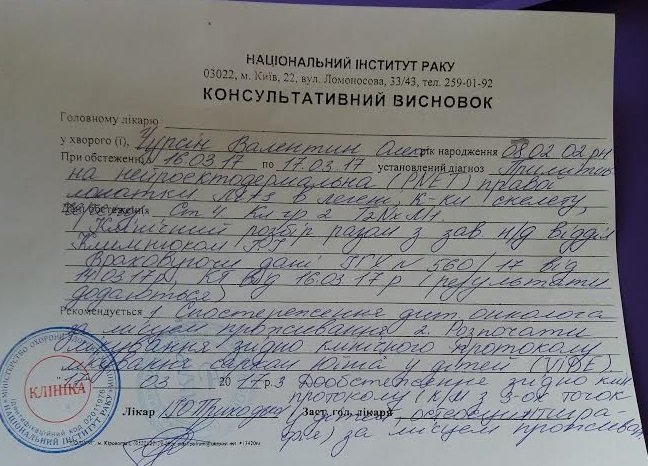 НАЦІОНАЛЬНИЙ ІНСТИТУТ РАКУ
03022, м. Київ, 22, вул. Ломоносова, 33/43, тел. 259-01-92
КОНСУЛЬТАТИВНИЙ ВИСНОВОК
Головному лікарю
у хворого (ї), Валентин рік народження 08.02.02 рн
При обстеженні з 16.03.17 по 17.03.17 установлений діагноз
на нейроектодермальна (PNET) правої
лопатки в легені, к-ки скелету,
Дані обстеження Ст 4 Кл гр 2
Клінічний розбір разом з зав н/д відділ
Климнюком
Враховуючи дані ПГЗ N 560/17 від
КТ від 16.03.17 р (результати
додаються)
Рекомендується 1. Спостереження дит онколога
за місцем проживання 2. Розпочати
лікування згідно клінічного протоколу
лікування саркоми Юїнга у дітей (VIDE).
03 2017р. 3 Дообстеження згідно клін
протоколу (к/м з 3-ох точок
Лікар Заст. гол. лікаря остеосцинтигра-
фія) за місцем проживан
КЛІНІКА
НАЦІОНАЛЬНИЙ ІНСТИТУТ РАКУ